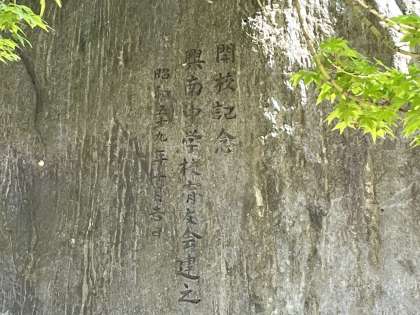 閉校記念
興南中学校育友会建之
昭和五十九年